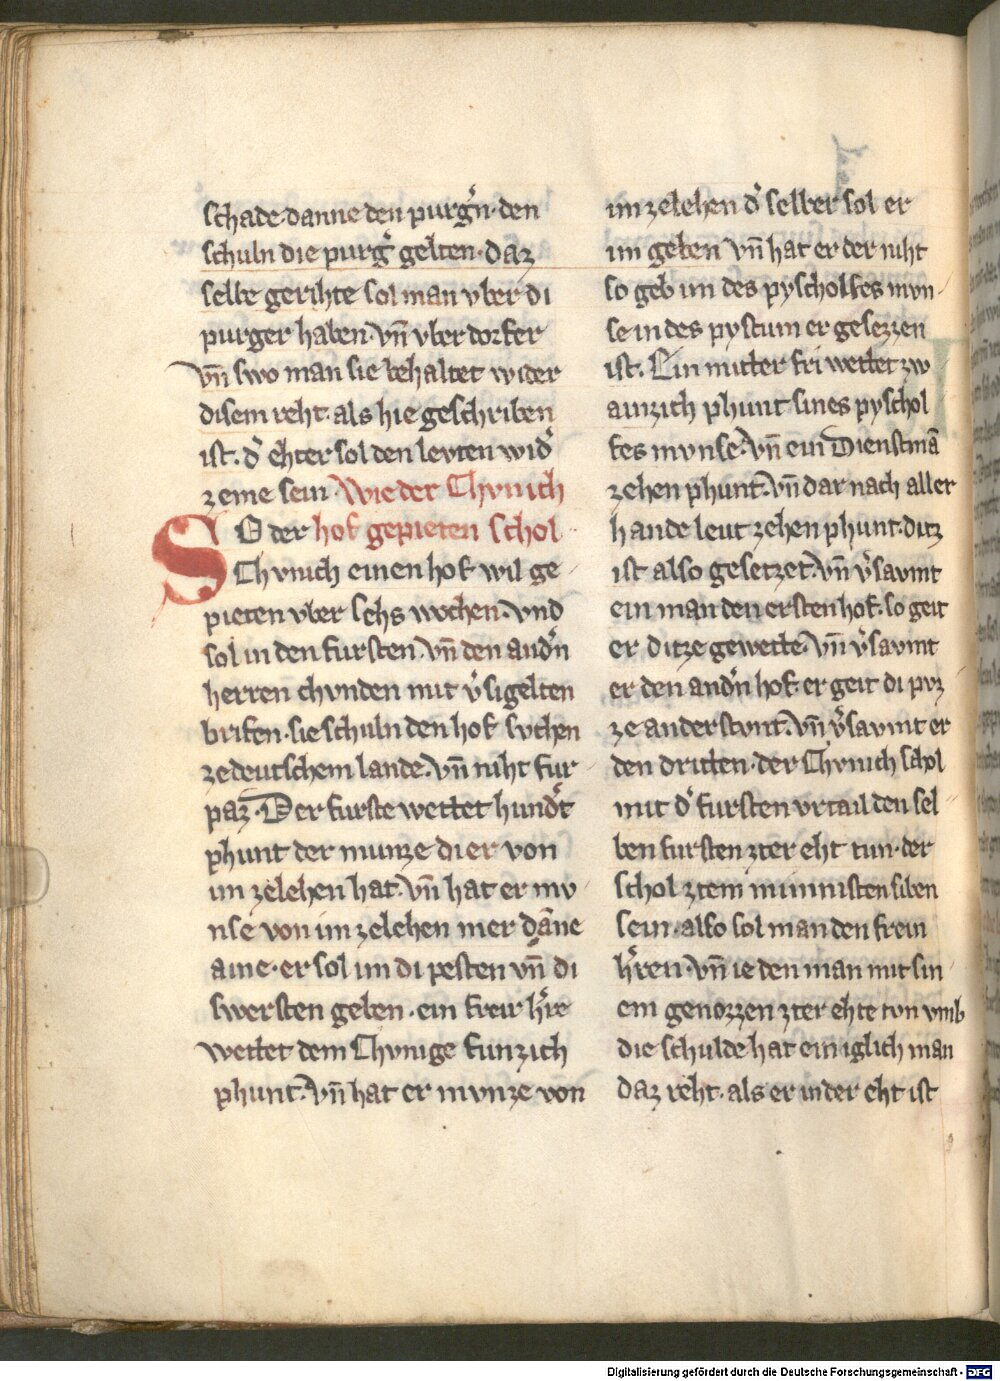 schade danne den purg̉n · den
schuln die purg̉ gelten · daz
selbe gerihte sol man vber di
purger haben · vn̄ vber dorfer
vn̄ swo man sie behaltet wider
disem reht · als hie geschriben
ist · d̉ ehter sol den levten wid̉
zeme sein · Wie der Chvnich
SO der hof gepieten schol
Chvnich einen hof wil ge
pieten vber sehs wochen · vnd
sol in den fursten · vn̄ den and̉n
herren chvnden mit v̉sigelten
brifen · sie schuln den hof svchen
ze deutschem lande · vn̄ niht fur
paz · Der furste wettet hund̉t
phunt der munze di er von
im zelehen hat · vn̄ hat er mv
nse von im zelehen mer dāne
aine · er sol im di pesten vn̄ di
swersten geben · ein freir h̉re
wettet dem Chvnige funzich
phunt · vn̄ hat er mvnze von
im zelehen d̉ selber sol er
im geben vn̄ hat er der niht
so geb im des pyscholfes mvn
se in des pystum er gesezzen
ist · Ein mitter fri wettet zw
ainzich phunt sines pyschol
fes mvnse · vn̄ ein Dienstmā
zehen phunt · vn̄ dar nach aller
hande leut zehen phunt · ditz
ist also gesetzet · vn̄ v̉savmt
ein man den ersten hof · so geit
er ditze gewette · vn̄ v̉savmt
er den and̉n hof er geit di pvz
ze anderstvnt · vn̄ v̉savmt er
den dritten · der Chvnich schol
mit d̉ fursten vrtail den sel
ben fursten zter eht tun · der
schol ztem minnisten siben
sein · also sol man den frein
h̉ren · vn̄ ie den man mit sin
em genozzen zter ehte tvn vmb
die schulde hat ein iglich man
daz reht · als er in der eht ist
Digitalisierung gefördert durch die Deutsche Forschungsgemeinschaft - DFG